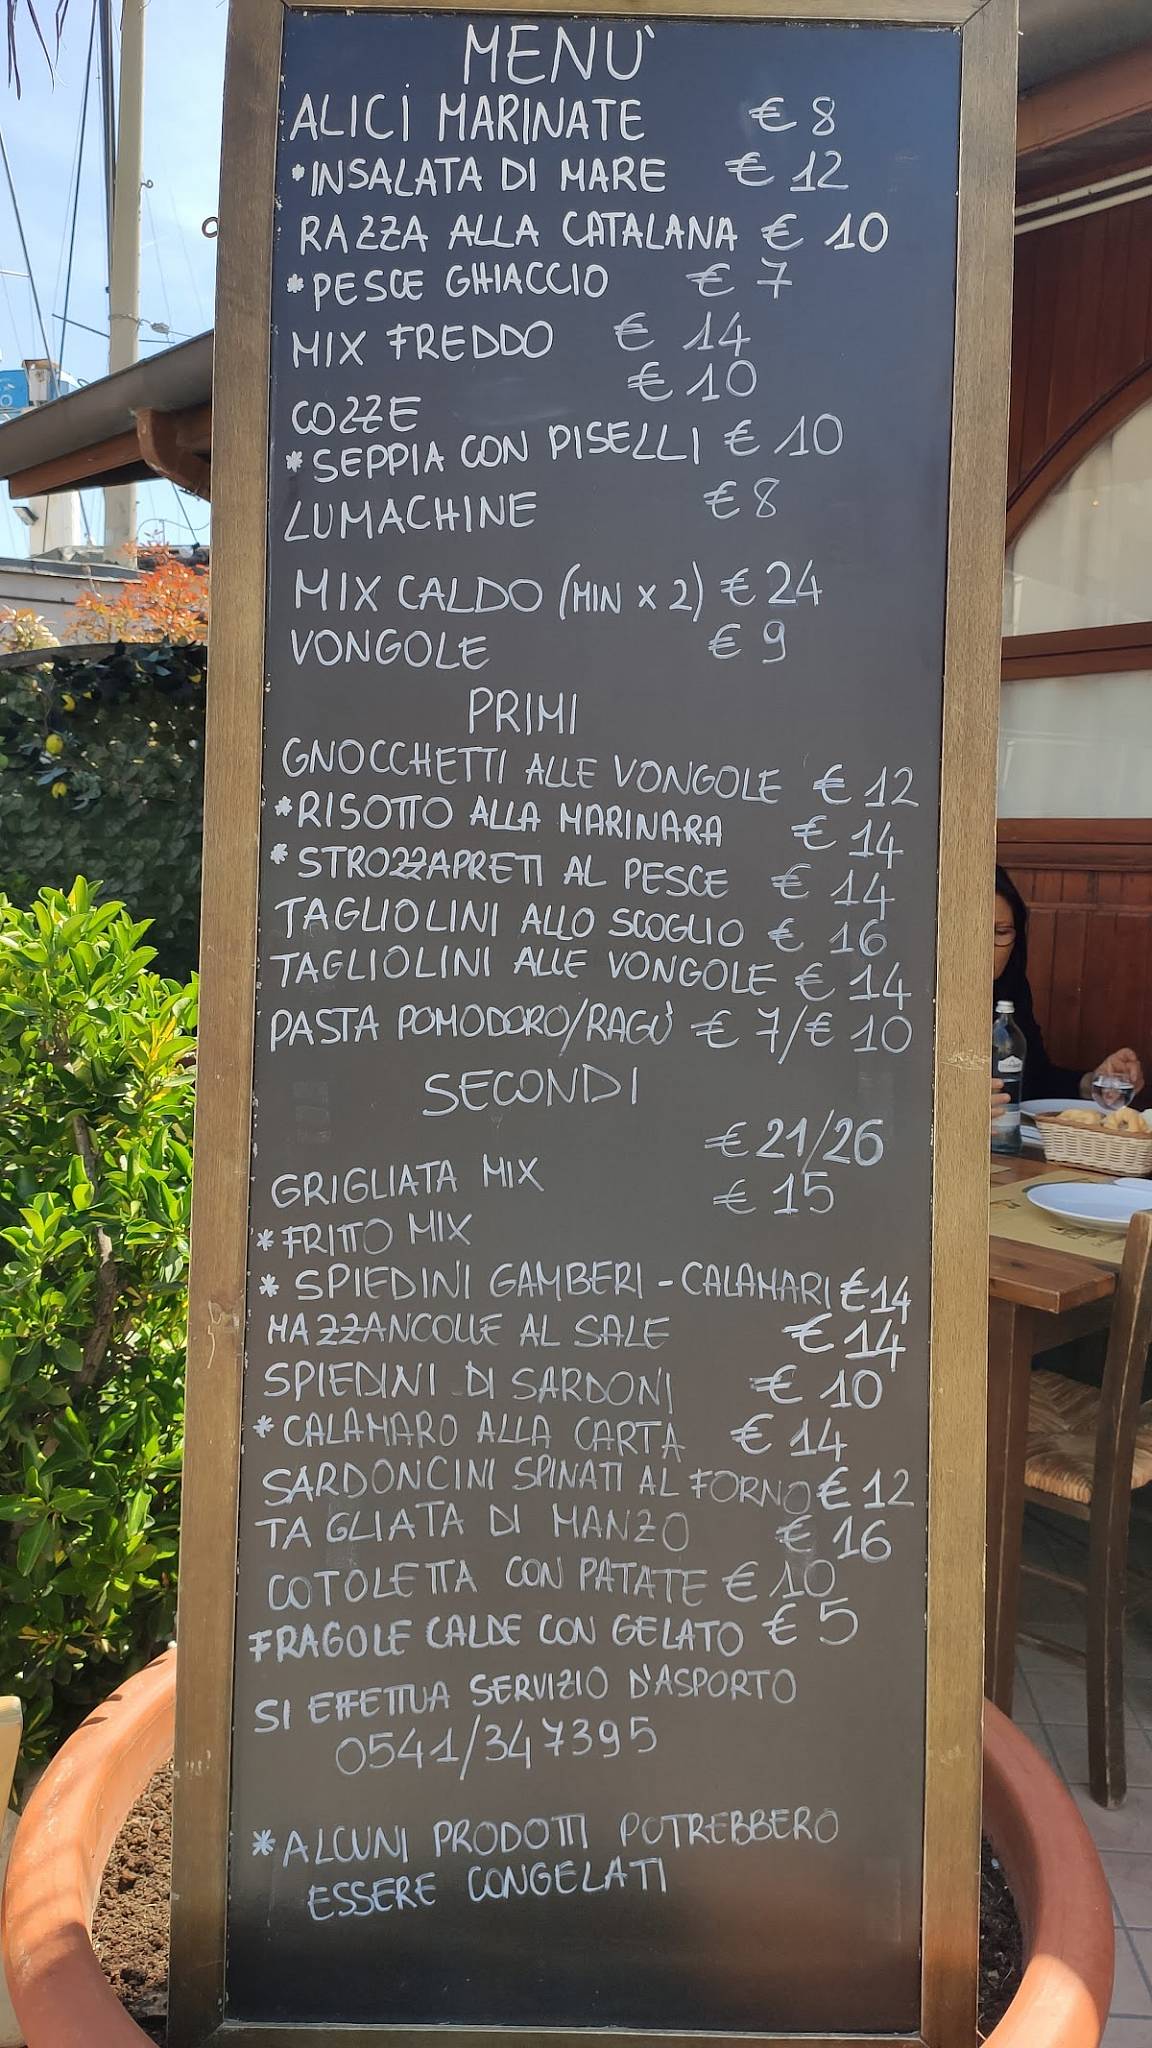 MENU'
ALICI MARINATE € 8
*INSALATA DI MARE € 12
RAZZA ALLA CATALANA € 10
*PESCE GHIACCIO € 7
MIX FREDDO € 14
COZZE € 10
*SEPPIA CON PISELLI € 10
LUMACHINE € 8
MIX CALDO (MIN X 2) € 24
VONGOLE € 9
PRIMI
GNOCCHETTI ALLE VONGOLE € 12
*RISOTTO ALLA MARINARA € 14
*STROZZAPRETI AL PESCE € 14
TAGLIOLINI ALLO SCOGLIO € 16
TAGLIOLINI ALLE VONGOLE € 14
PASTA POMODORO/RAGU' € 7/€ 10
SECONDI
GRIGLIATA MIX € 21/26
*FRITTO MIX € 15
* SPIEDINI GAMBERI - CALAMARI € 14
MAZZANCOLLE AL SALE € 14
SPIEDINI DI SARDONI € 10
*CALAMARO ALLA CARTA € 14
SARDONCINI SPINATI AL FORNO € 12
TAGLIATA DI MANZO € 16
COTOLETTA CON PATATE € 10
FRAGOLE CALDE CON GELATO € 5
SI EFFETTUA SERVIZIO D'ASPORTO
0541/347395
*ALCUNI PRODOTTI POTREBBERO
ESSERE CONGELATI